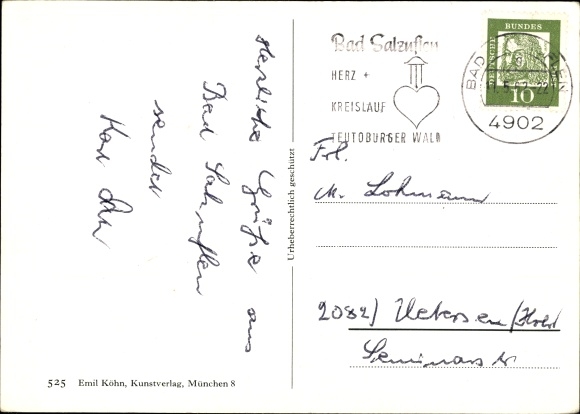 Herzliche Grüße aus
Bad Salzuflen
sendet
Urheberrechtlich geschützt
525 Emil Köhn, Kunstverlag, München 8
Bad Salzuflen
HERZ +
KREISLAUF
TEUTOBURGER WALD
DEUTSCHE BUNDES
10
BAD SALZUFLEN
4902
Frl.
M. Lohmann
2082) Uetersen/Holst
Seminarstr